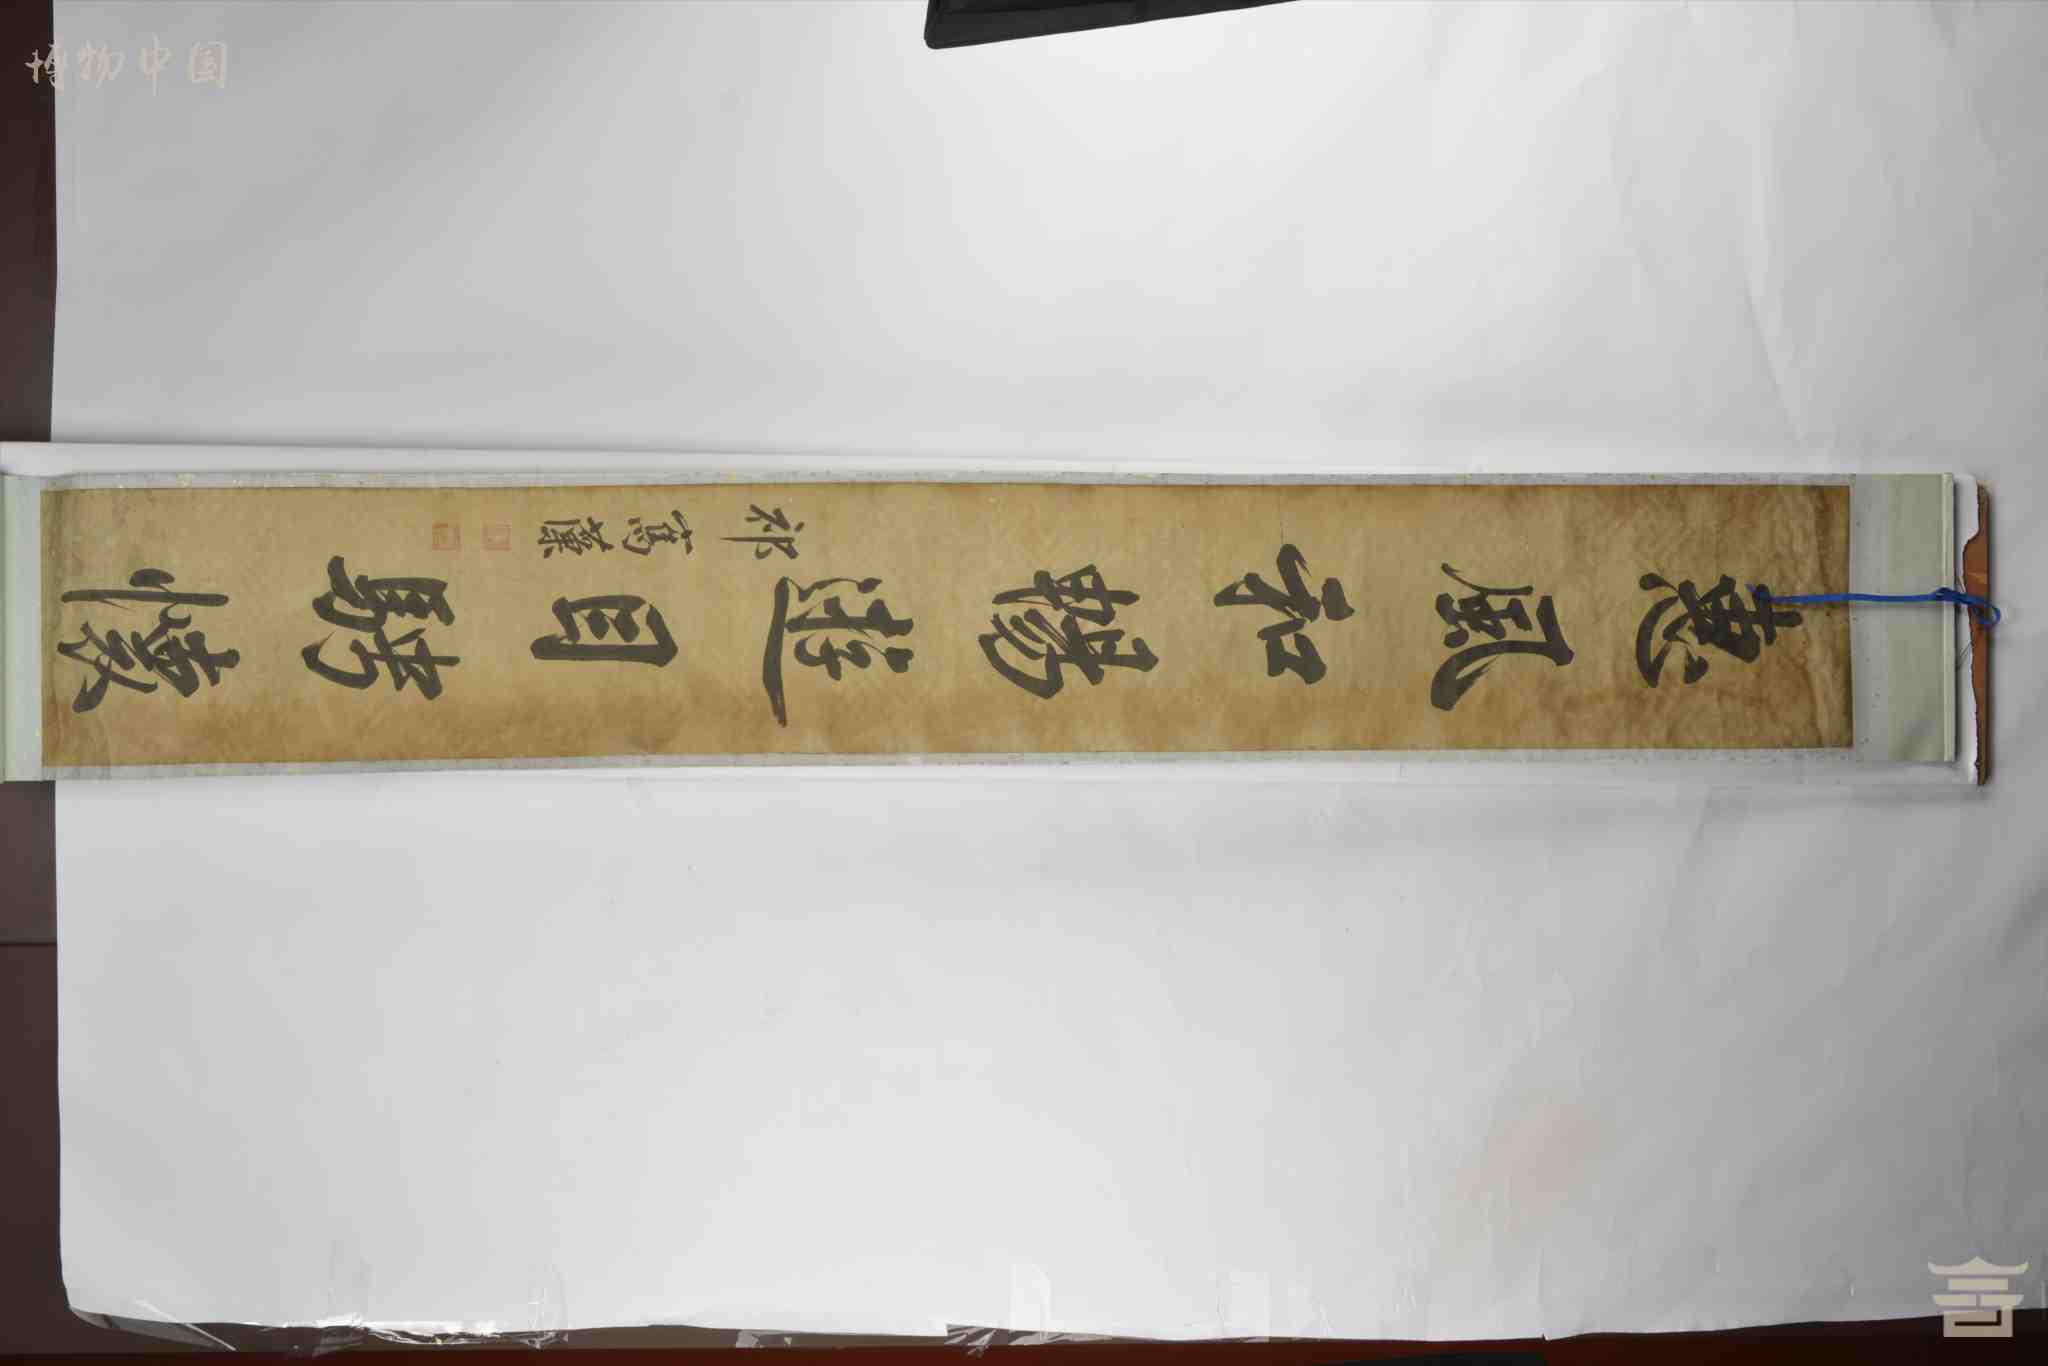 博物中国
惠風和暢遊目騁懷
祁寯藻